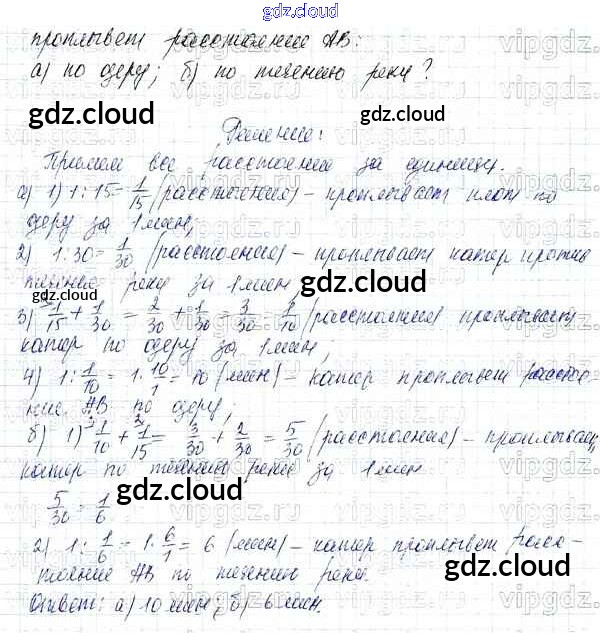 gdz.cloud
проплывет расстояние АВ:
а) по озеру; б) по течению реки?
gdz.cloud
Решение:
Примем все расстояние за единицу.
а) 1) 1:15=1/15 (расстояния) – проплывает плот по
озеру за 1 мин;
2) 1:30=1/30 (расстояния) – проплывает катер против
течения реки за 1 мин;
3) 1/15 + 1/30 = 2/30 + 1/30 = 3/30 = 1/10 (расстояния) проплывает
катер по озеру за 1 мин;
4) 1:1/10 = 1·10/1 = 10 (мин) – катер проплывет расстоя-
ние АВ по озеру;
б) 1) 1/10 + 1/15 = 3/30 + 2/30 = 5/30 (расстояния) – проплывает
катер по течению реки за 1 мин.
5/30 = 1/6
2) 1:1/6 = 1·6/1 = 6 (мин) – катер проплывет расс-
тояние АВ по течению реки.
Ответ: а) 10 мин; б) 6 мин.